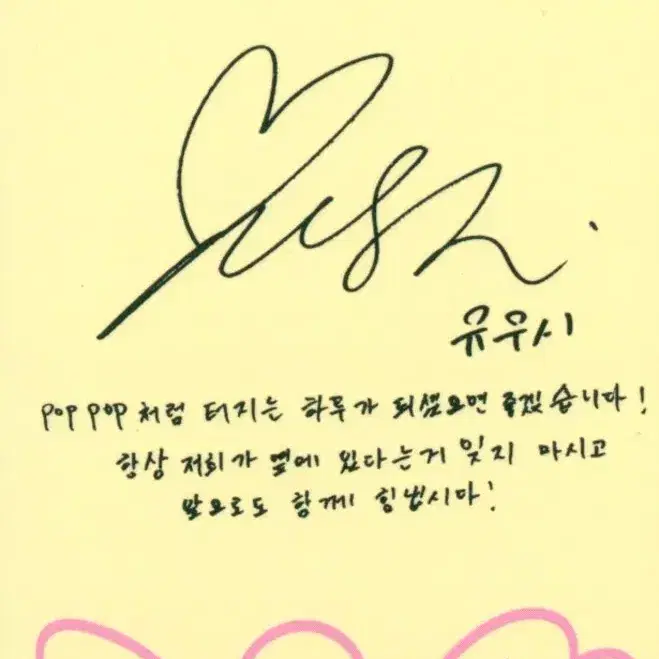 Yushi
유우시
pop pop 처럼 터지는 하루가 되셨으면 좋겠습니다!
항상 저희가 옆에 있다는거 잊지 마시고
앞으로도 함께 힘냅시다!